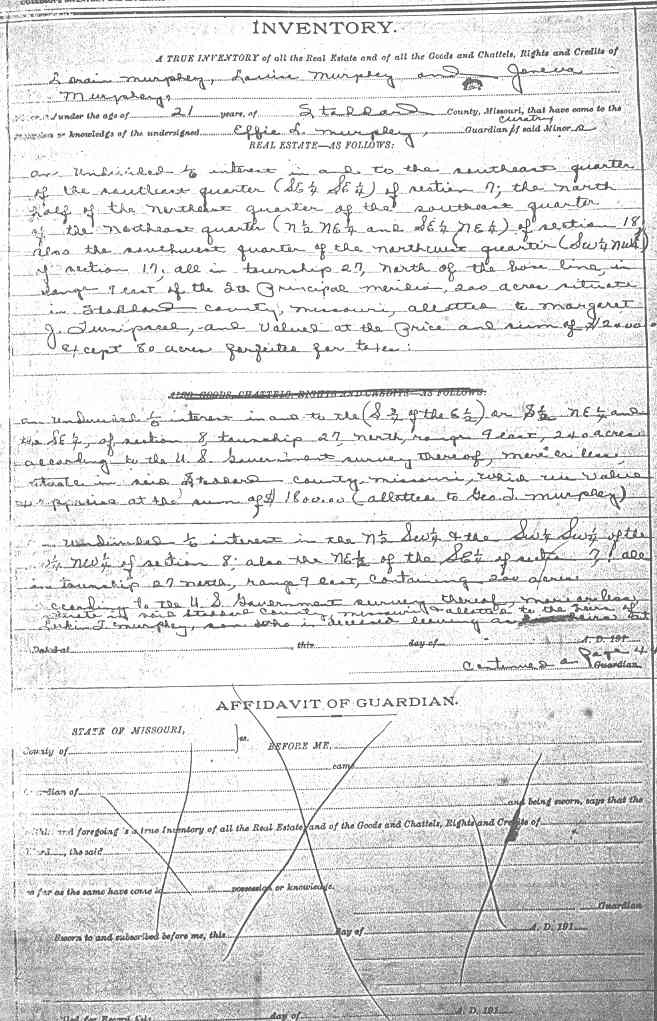 INVENTORY.
A TRUE INVENTORY of all the Real Estate and of all the Goods and Chattels, Rights and Credits of
Lorain Murphey, Louise Murphey and Geneva
Murphey,
under the age of 21 years, of Stoddard County, Missouri, that have come to the
or knowledge of the undersigned Effie L. Murpley, Guardian & curatrix of said Minors
REAL ESTATE—AS FOLLOWS:
an Undivided interest in and to the southeast quarter
of the southeast quarter (SE¼ SE¼) of section 7; the north
half of the northeast quarter of the southeast quarter
of the Northeast quarter (N½ NE¼ and SE¼ NE¼) of section 18
Also the southwest quarter of the northwest quarter (SW¼ NW¼)
of section 17, all in township 27, North of the base line, in
range 9 east of the 5th Principal meridian, 200 acres situate
in Stoddard county, Missouri, allotted to Margaret
J. and Valued at the Price and sum of $
except 80 acres forfeited for taxes:
ALSO GOODS, CHATTELS, RIGHTS AND CREDITS—AS FOLLOWS:
an Undivided interest in and to the (S of the E½) or S½ NE¼ and
the SE¼, of section 8, township 27, north, range 9 east, 240 acres
according to the U. S. Government survey thereof, more or less,
situate in said Stoddard county, Missouri, which we value
at the sum of $1800.00 (allotted to Geo. T. Murphey)
Undivided interest in the N½ SW¼ & the SW¼ SW¼ of the
NW¼ of section 8; also the NE¼ of the SE¼ of section 7, all
in township 27 north, range 9 east, Containing 200 acres
according to the U. S. Government survey thereof, more or less
situate in said Stoddard County, Missouri allotted to the heirs of
T. Murphey, son who is deceased leaving as heirs
Dated at , this day of A. D. 191
Continued on Page 4 Guardian
AFFIDAVIT OF GUARDIAN.
STATE OF MISSOURI,
County of ss. BEFORE ME,
came
Guardian of
and being sworn, says that the
within and foregoing is a true Inventory of all the Real Estate and of the Goods and Chattels, Rights and Credits of
, the said
so far as the same have come to possession or knowledge.
Guardian
Sworn to and subscribed before me, this day of A. D. 191
Filed for Record this day of A. D. 191